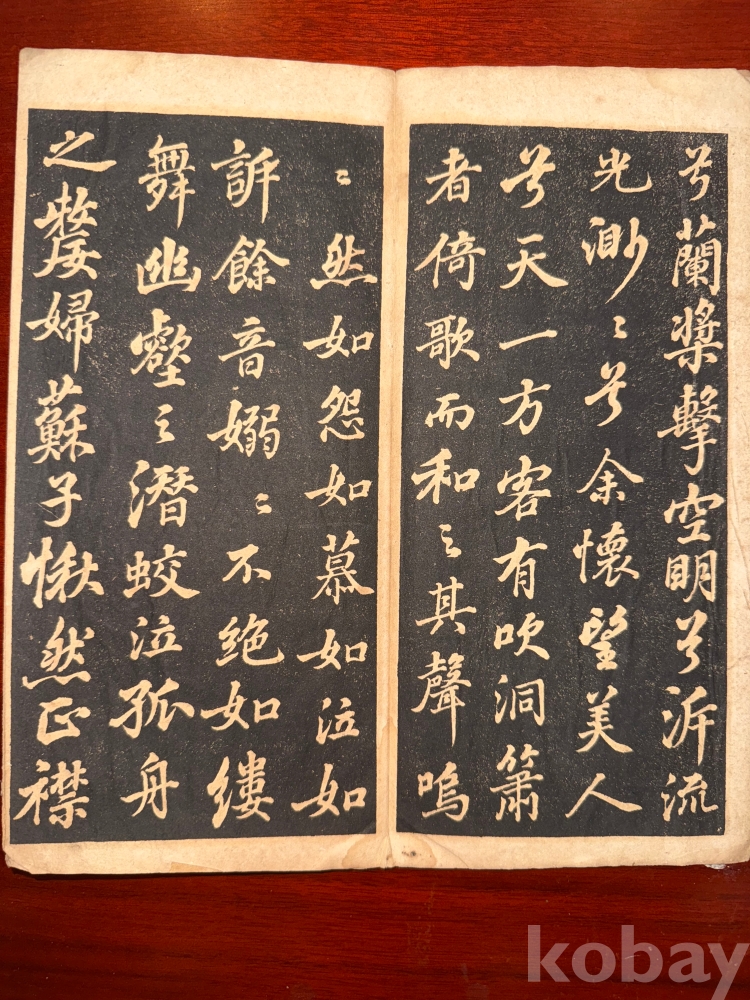 兮蘭槳擊空明兮泝流
光渺〻兮余懷望美人
兮天一方客有吹洞簫
者倚歌而和〻其聲嗚
〻然如怨如慕如泣如
訴餘音嫋〻不絕如縷
舞幽壑之潛蛟泣孤舟
之嫠婦蘇子愀然正襟
kobay